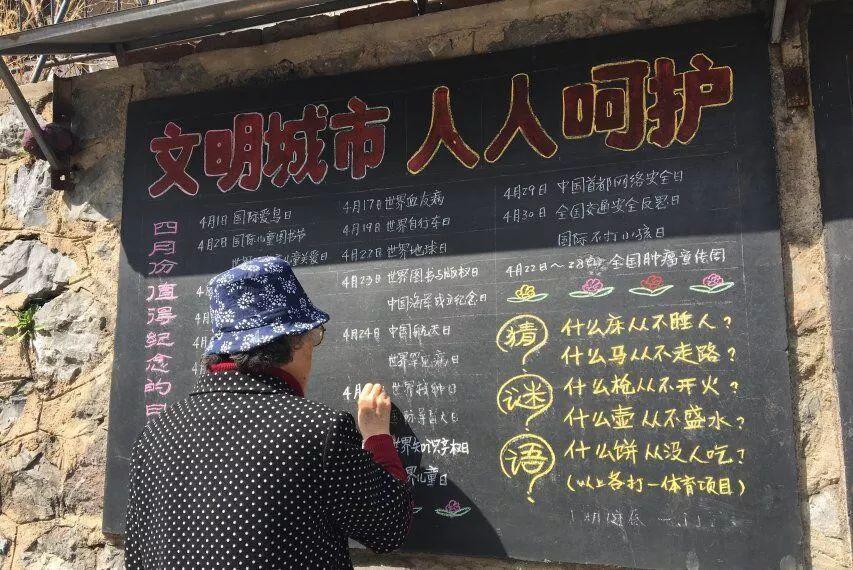 文明城市 人人呵护
四月份值得纪念的日
4月1日 国际爱鸟日
4月2日 国际儿童图书节
4月17日 世界血友病
4月19日 世界自行车日
4月22日 世界地球日
4月23日 世界图书与版权日
中国海军成立纪念日
4月24日 中国航天日
世界 日
世界 日
日
世界知识产权日
日
4月29日 中国首都网络安全日
4月30日 全国交通安全反思日
国际不打小孩日
4月22日~28日 全国肿瘤宣传周
猜谜语?
什么床从不睡人?
什么马从不走路?
什么枪从不开火?
什么壶从不盛水?
什么饼从没人吃?
(以上各打一体育项目)